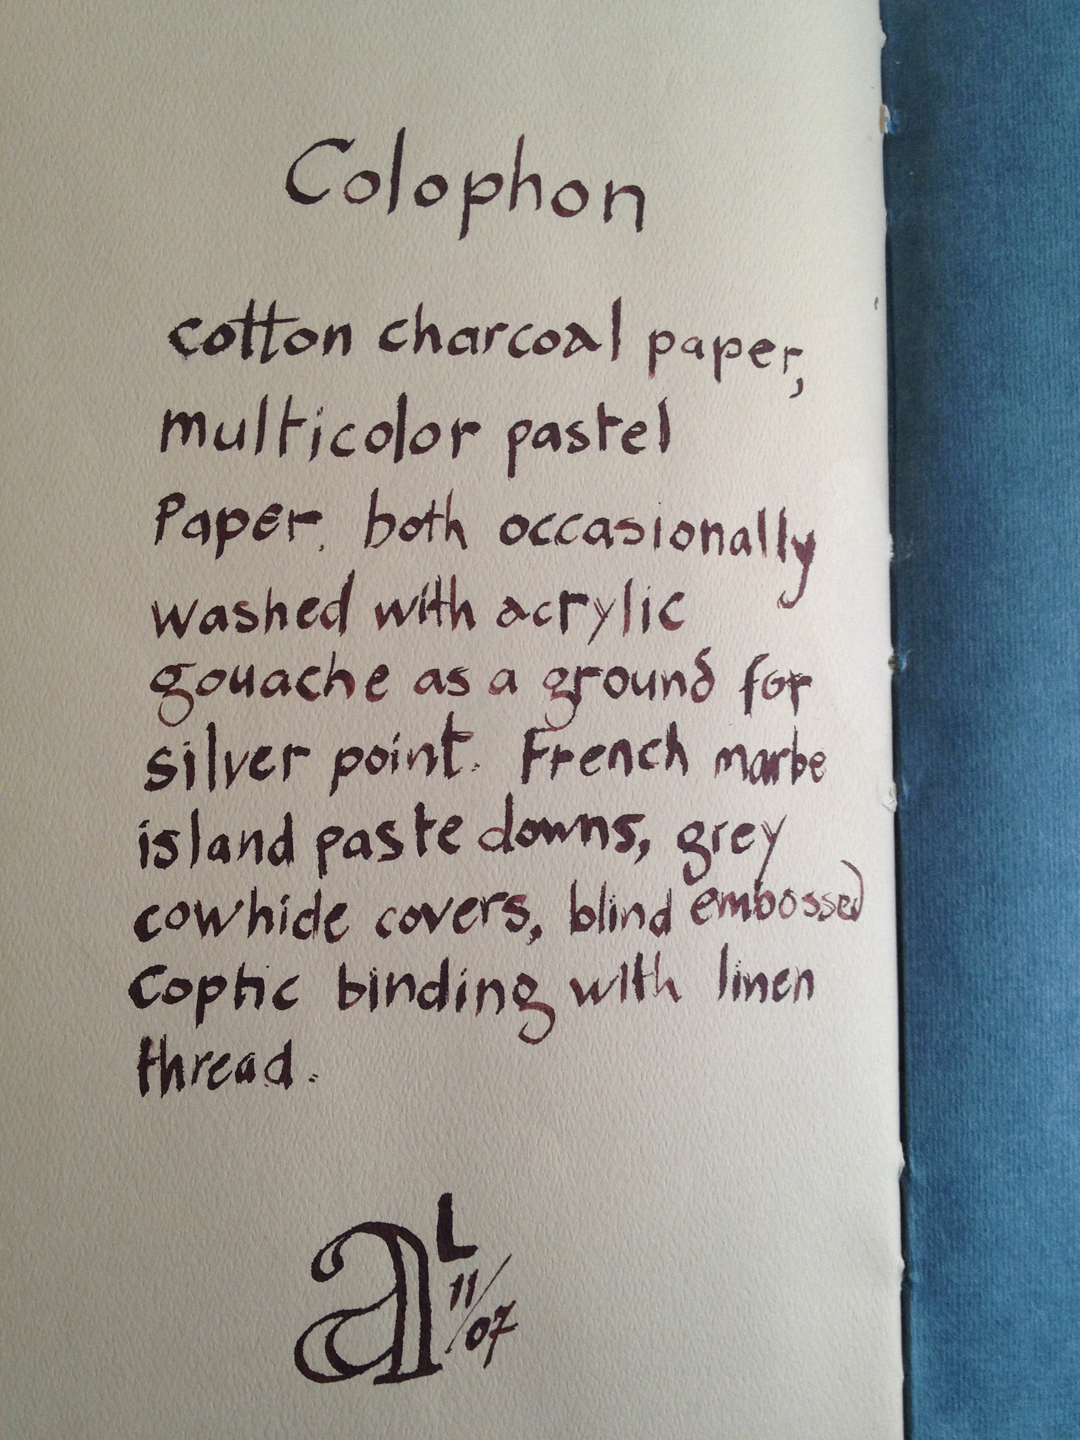 Colophon
cotton charcoal paper,
multicolor pastel
Paper. both occasionally
washed with acrylic
gouache as a ground for
silver point. French marbe
island paste downs, grey
cowhide covers, blind embossed
Coptic binding with linen
thread.
a L
11/07